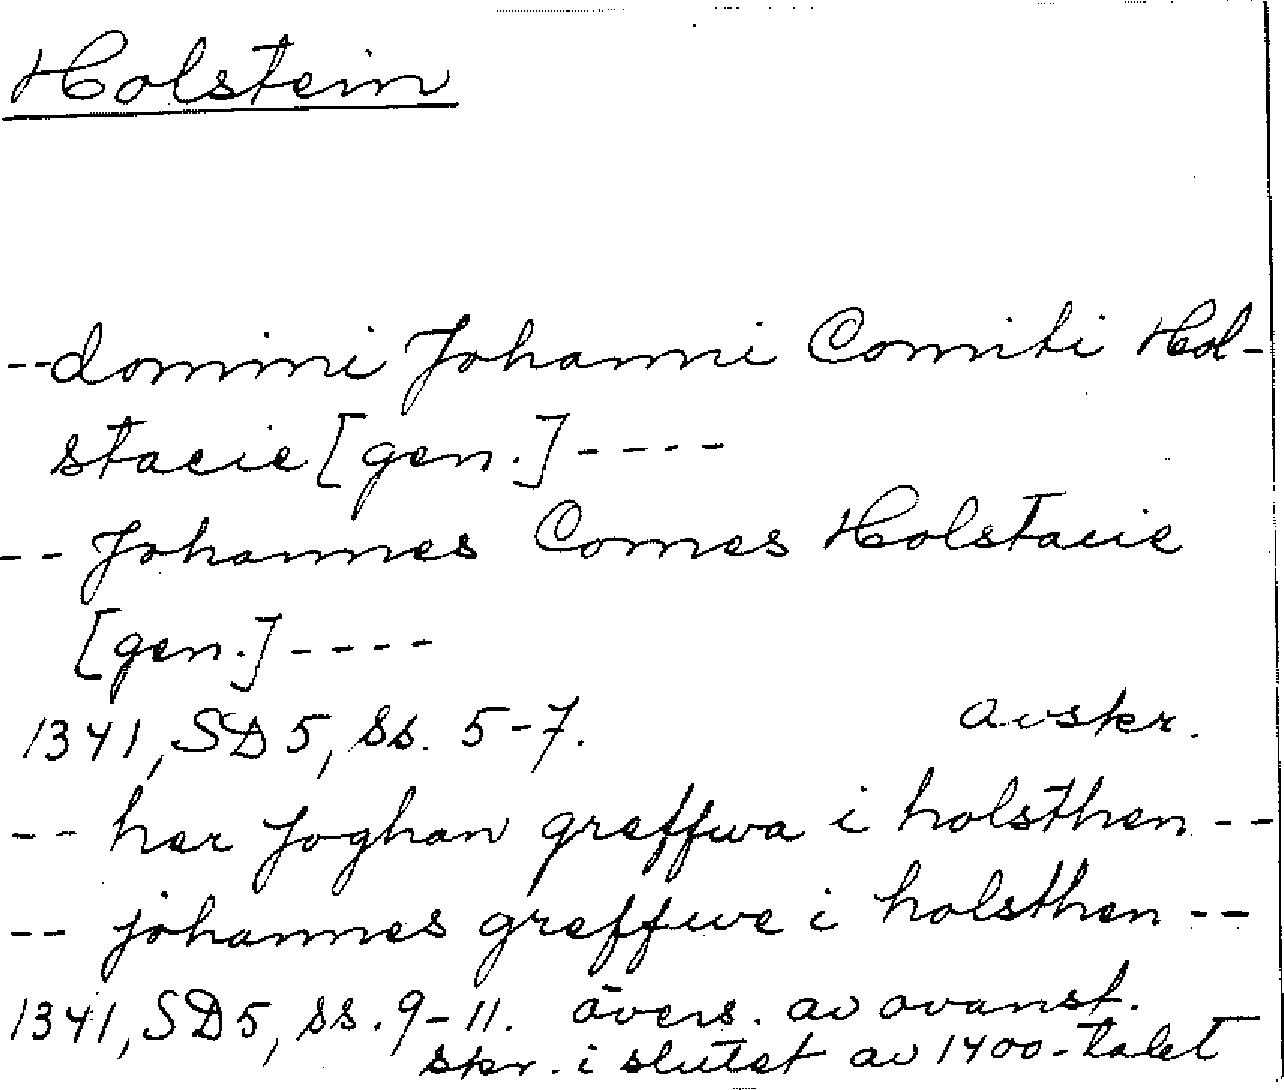 Holstein
-- domini Johanni Comiti Hol-
stacie [gen.] ----
-- Johannes Comes Holstacie
[gen.] ----
1341, SD 5, ss. 5-7. avskr.
-- her Joghan greffwa i holsthen --
-- johannes greffwe i holsthen --
1341, SD 5, ss. 9-11. övers. av ovanst.
skr. i slutet av 1400-talet